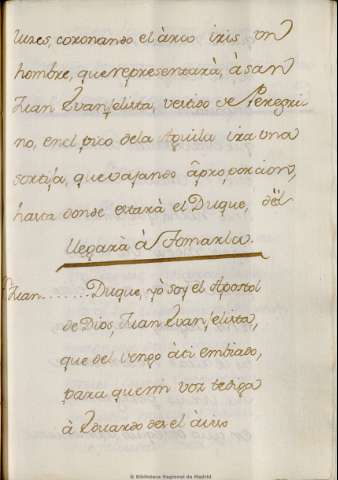 luzes, coronando el árco iris un
hombre, que representará, á san
Juan Evanjelista, vestido de Peregri-
no, en el pico dela Aguila ira una
sortija, que vajando á proporcion,
hasta donde estará el Duque, dél
llegará á Tomarla.
Juan....... Duque, yó soy el Apostol
de Dios, Juan Evanjelista,
que del vengo á ti embiado,
para que mi voz te diga
á Eduardo des el aviso
© Biblioteca Regional de Madrid